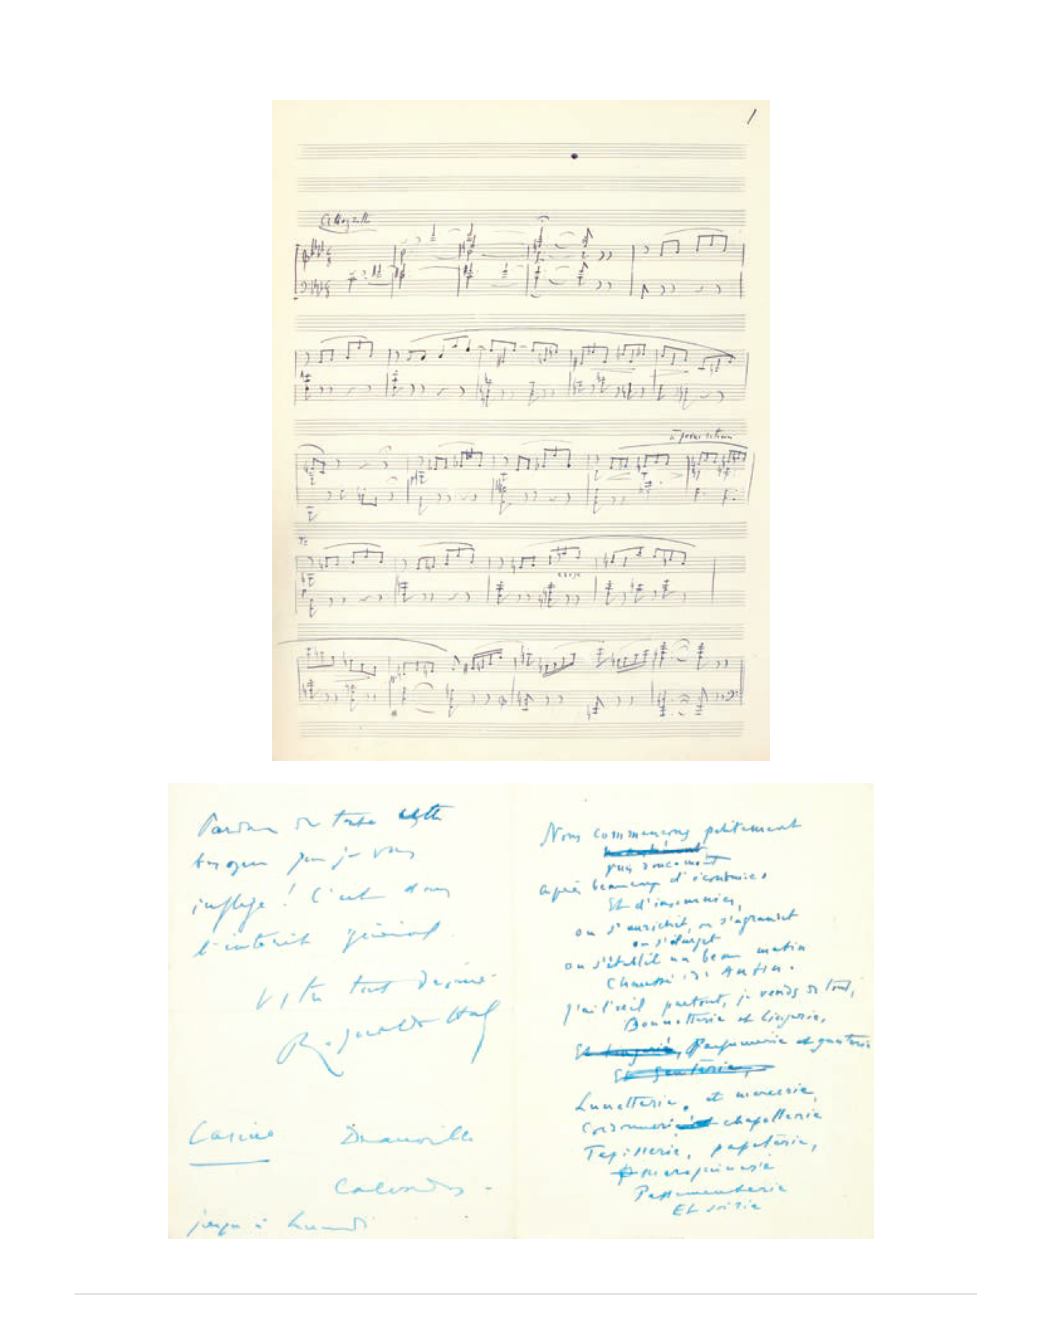 1
Allegretto
à peine retenu
Tº
Pardon de toute cette
que je vous
inflige ! C'est dans
l'intérêt général.
Votre tout dévoué
Reynaldo Hahn
Casino Deauville
Calvados -
jusqu'à lundi
Nous commençons petitement
puis doucement
après beaucoup d'économies
Et d'insomnies,
on s'enrichit, on s'agrandit
on s'élargit
on s'établit un beau matin
Chaussée d'Antin.
J'ai l'œil partout, je vends de tout,
Bonneterie et lingerie,
Et lingerie, Parfumerie et ganterie
Et ganterie,
Lunetterie, et mercerie,
Cordonnerie et chapellerie
Tapisserie, papeterie,
maroquinerie
Passementerie
Et soierie